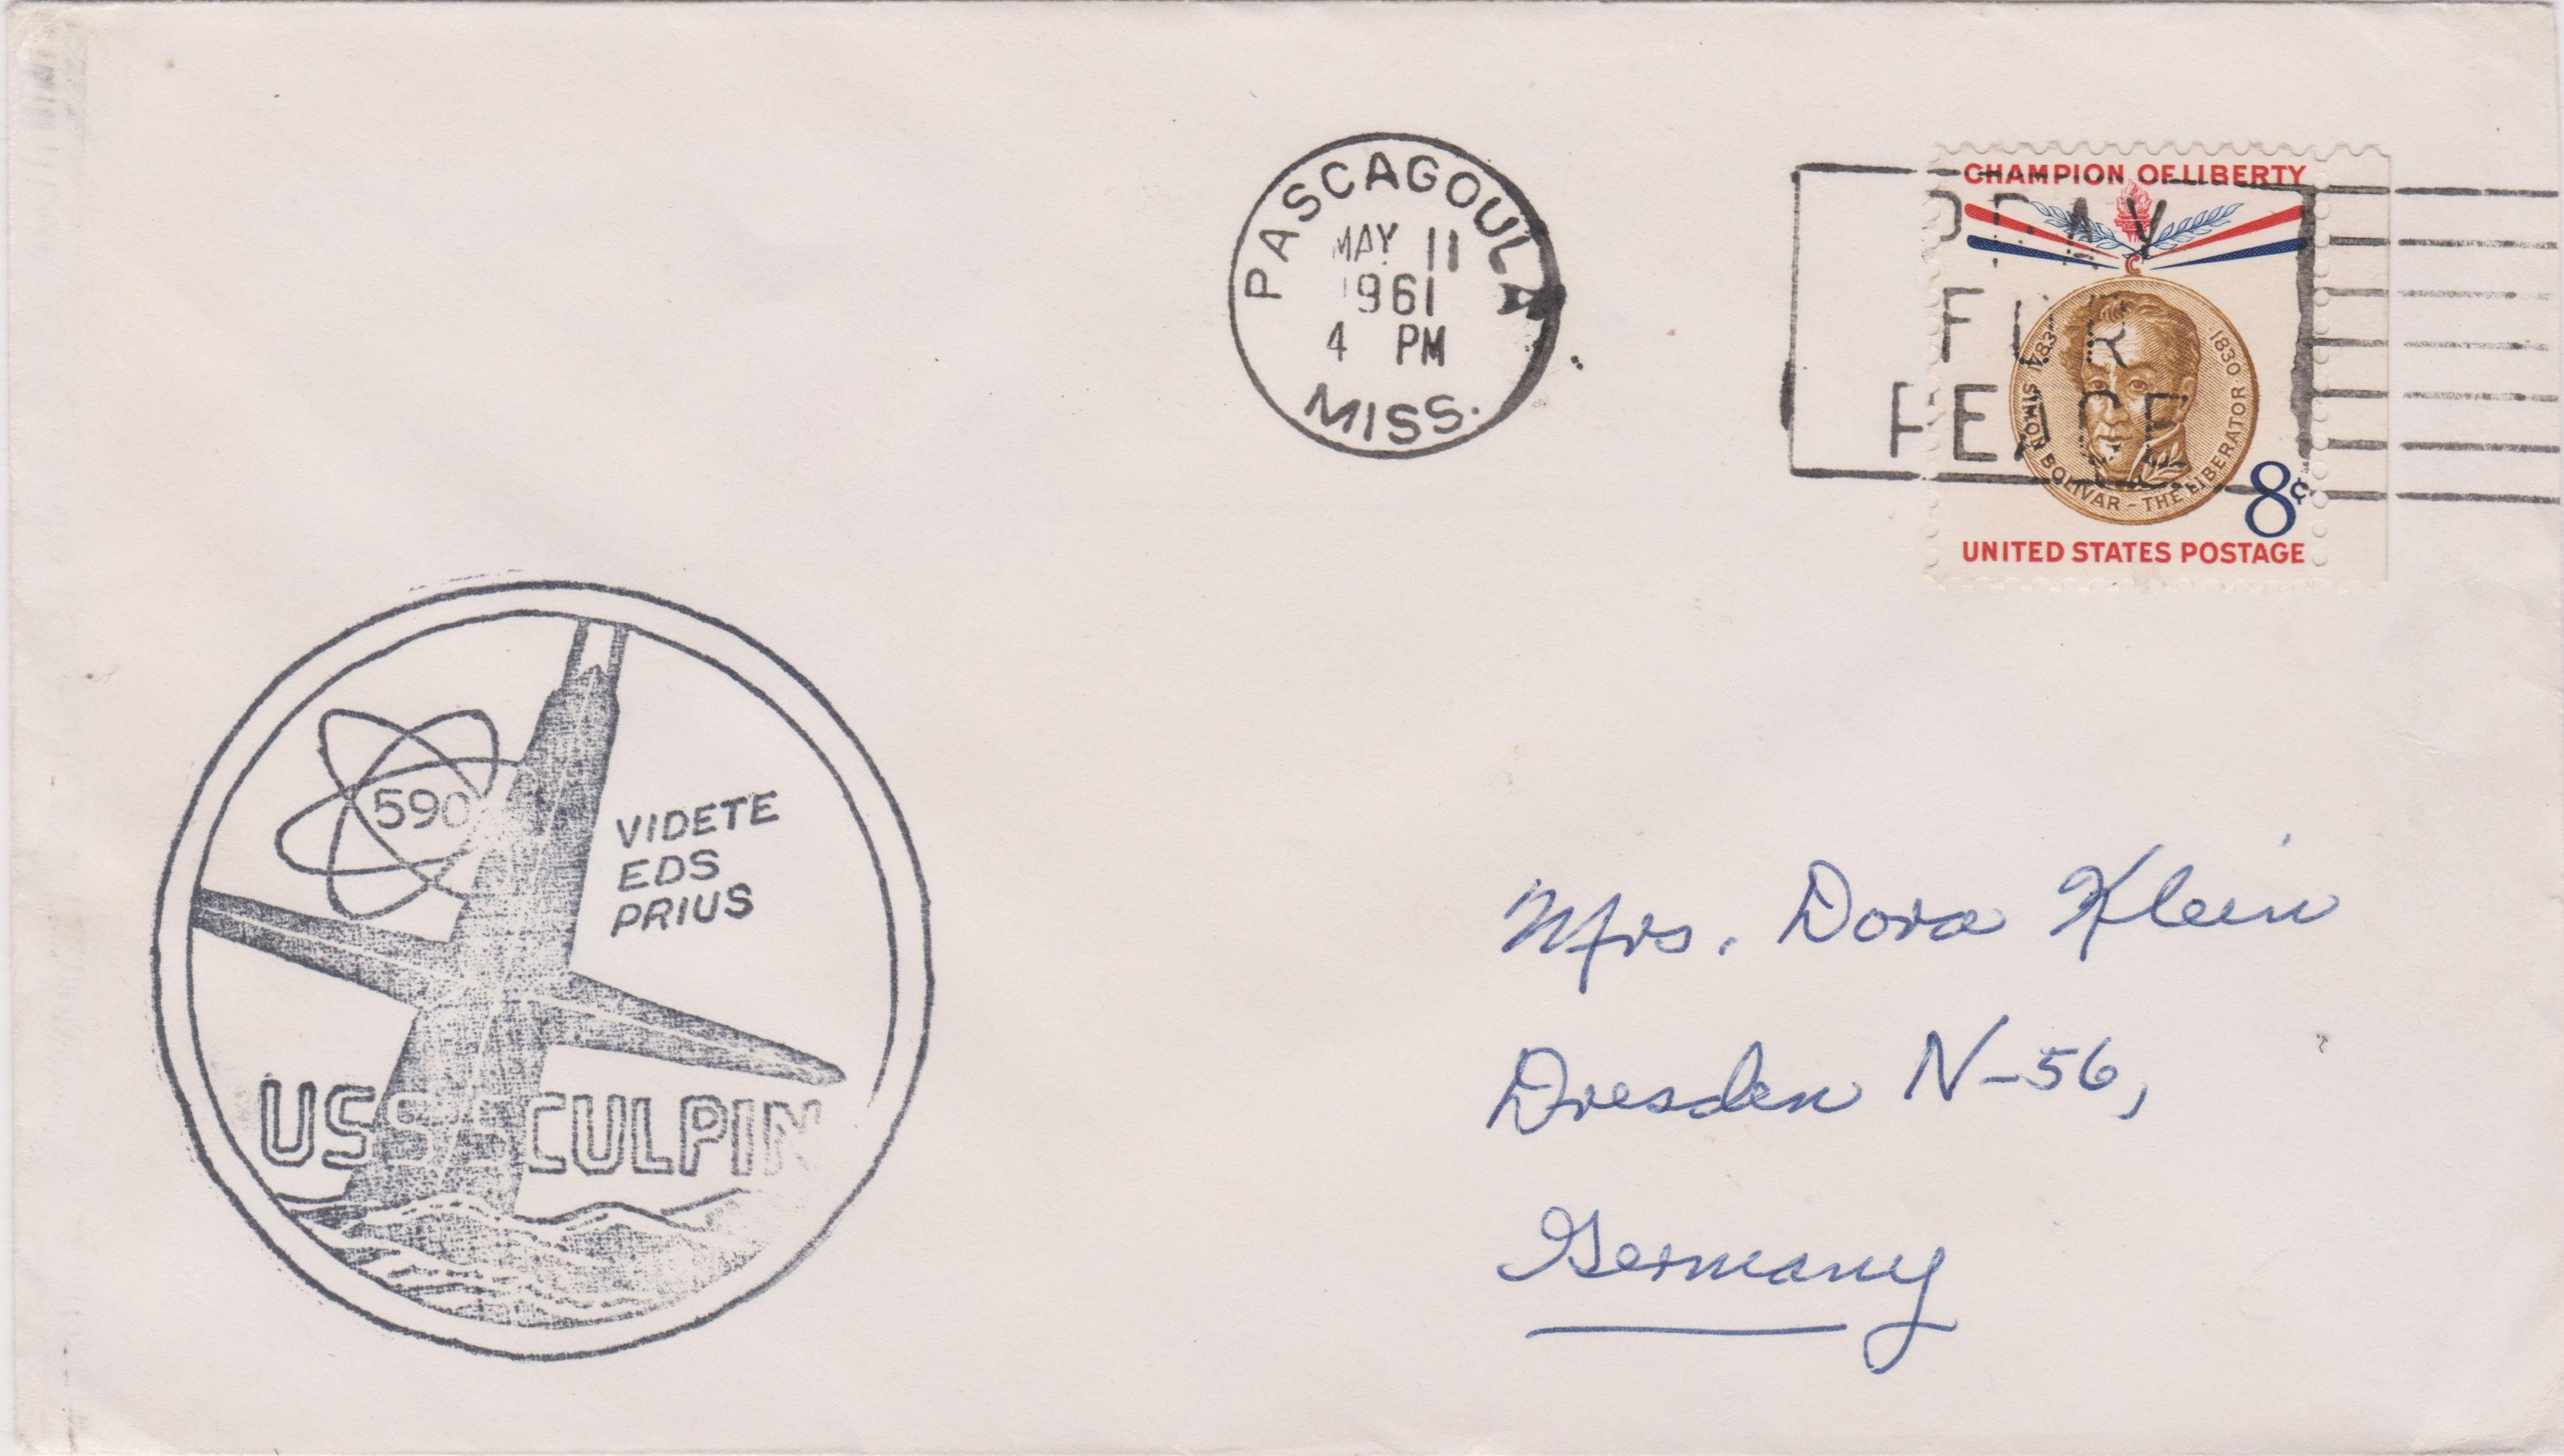 PASCAGOULA
MAY 11
1961
4 PM
MISS.
PRAY
FOR
PEACE
CHAMPION OF LIBERTY
SIMON BOLIVAR - THE LIBERATOR
1783
1830
8¢
UNITED STATES POSTAGE
590
VIDETE
EDS
PRIUS
USS SCULPIN
Mrs. Dora Klein
Dresden N-56,
Germany